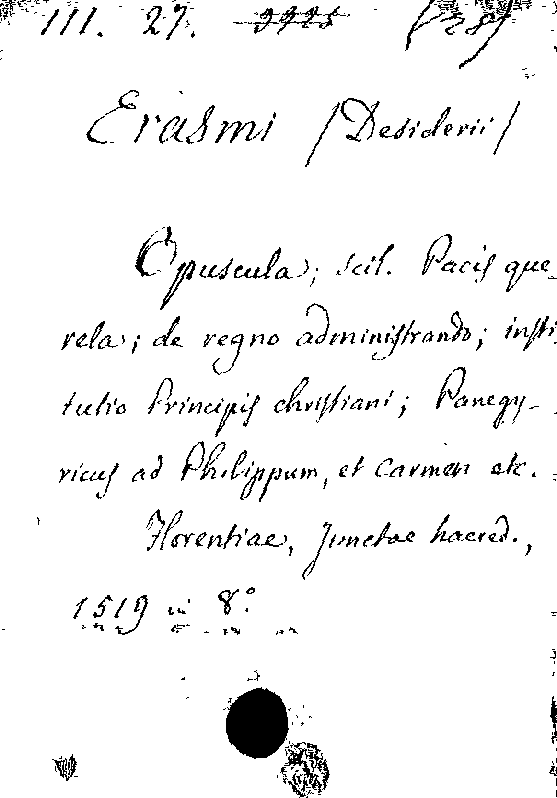 III. 27.
Erasmi /Desiderii/
Opuscula; scil. Pacis que-
rela; de regno administrando; insti
tutio Principis christiani; Panegy-
ricus ad Philippum, et Carmen etc.
Florentiae, Junctae haered.,
1519 in 8.º